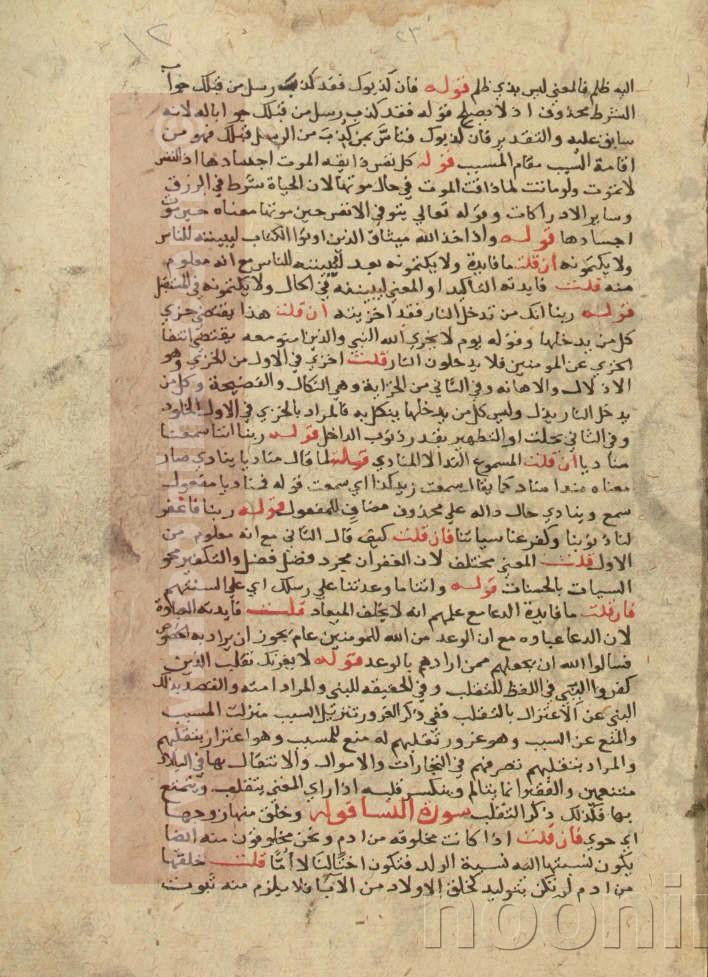 اليه ظلم فالمعني ليس بذي ظلم قوله فان كذبوك فقد كذب رسل من قبلك جواب
الشرط محذوف اذ لا يصلح قوله فقد كذب رسل من قبلك جوابا له لانه
سابق عليه والتقدير فان كذبوك فتاس بمن كذب من الرسل قبلك فهو من
اقامة السبب مقام المسبب قوله كل نفس ذايقة الموت اجسادها اذ النفس
لا تموت ولو ماتت لما ذاقت الموت في حال موتها لان الحياة شرط في الذوق
وساير الادراكات وقوله تعالي يتوفي الانفس حين موتها معناه حين موت
اجسادها قوله واذ اخذ الله ميثاق الذين اوتوا الكتاب ليبيننه للناس
ولا يكتمونه ان قلت ما فايدة ولا يكتمونه بعد ليبيننه للناس مع انه معلوم
منه قلت فايدته التاكيد او المعني ليبيننه في الحال ولا يكتمونه في المستقبل
قوله ربنا انك من تدخل النار فقد اخزيته ان قلت هذا يقتضي خزي
كل من يدخلها وقوله يوم لا يخزي الله النبي والذين امنو معه يقتضي انتفا
الخزي عن المومنين فلا يدخلون النار قلت اخزي في الاول من الخزي وهو
الاذلال والاهانه وفي الثاني من الخزاية وهي النكال والفضيحة وكل من
يدخل النار يذل وليس كل من يدخلها ينكل به فالمراد بالخزي في الاول الخلود
وفي الثاني تحلت او التطهير بقدر ذنوب الداخل قوله ربنا اننا سمعنا
مناديا ان قلت المسموع الندا لا المنادي قوله لما قال مناديا ينادي صار
معناه نداء مناد كما يقال سمعت زيد كذا اي سمعت قوله فمناديا مفعول
سمع وينادي حال دالة علي محذوف مضاف للمفعول قوله ربنا فاغفر
لنا ذنوبنا وكفر عنا سياتنا فان قلت كيف قال الثاني مع انه معلوم من
الاول قلت المعني مختلف لان الغفران مجرد فضل والتكفير محو
السيات بالحسنات قوله واتنا ما وعدتنا علي رسلك اي علي السنتهم
فان قلت ما فايدة الدعا مع علمهم انه لا يخلف الميعاد قلت فايدته العبادة
لان الدعا عبادة مع ان الوعد من الله للمومنين عام يجوز ان يراد به الخصوص
فسالوا الله ان يجعلهم ممن ارادهم بالوعد قوله لا يغرنك تقلب الذين
كفروا النهي في اللفظ للتقلب وفي الحقيقه للنبي والمراد امته والقصد بذلك
النهي عن الاغترار بالتقلب ففي ذكر الغرور تنزيل السبب منزلت المسبب
والمنع عن السبب وهو غرور تقلبهم له منع للمسبب وهو اغترار بتقلبهم
والمراد بتقلبهم تصرفهم في التجارات والاموال والانتقال بها في البلاد
متنعمين والفقير انما يتالم وينكسر قلبه اذا راي الغني يتقلب ويتمتع
بها فلذلك ذكر التقلب سورة النسا قوله وخلق منها زوجها
اي حوي فان قلت اذا كانت مخلوقه من ادم ونحن مخلوقون منه ايضا
يكون نسبتها اليه نسبة الولد فتكون اختا لنا لا اما قلت خلقها
من ادم لم يكن بتوليد كخلق الاولاد من الابا فلا يلزم منه ثبوت